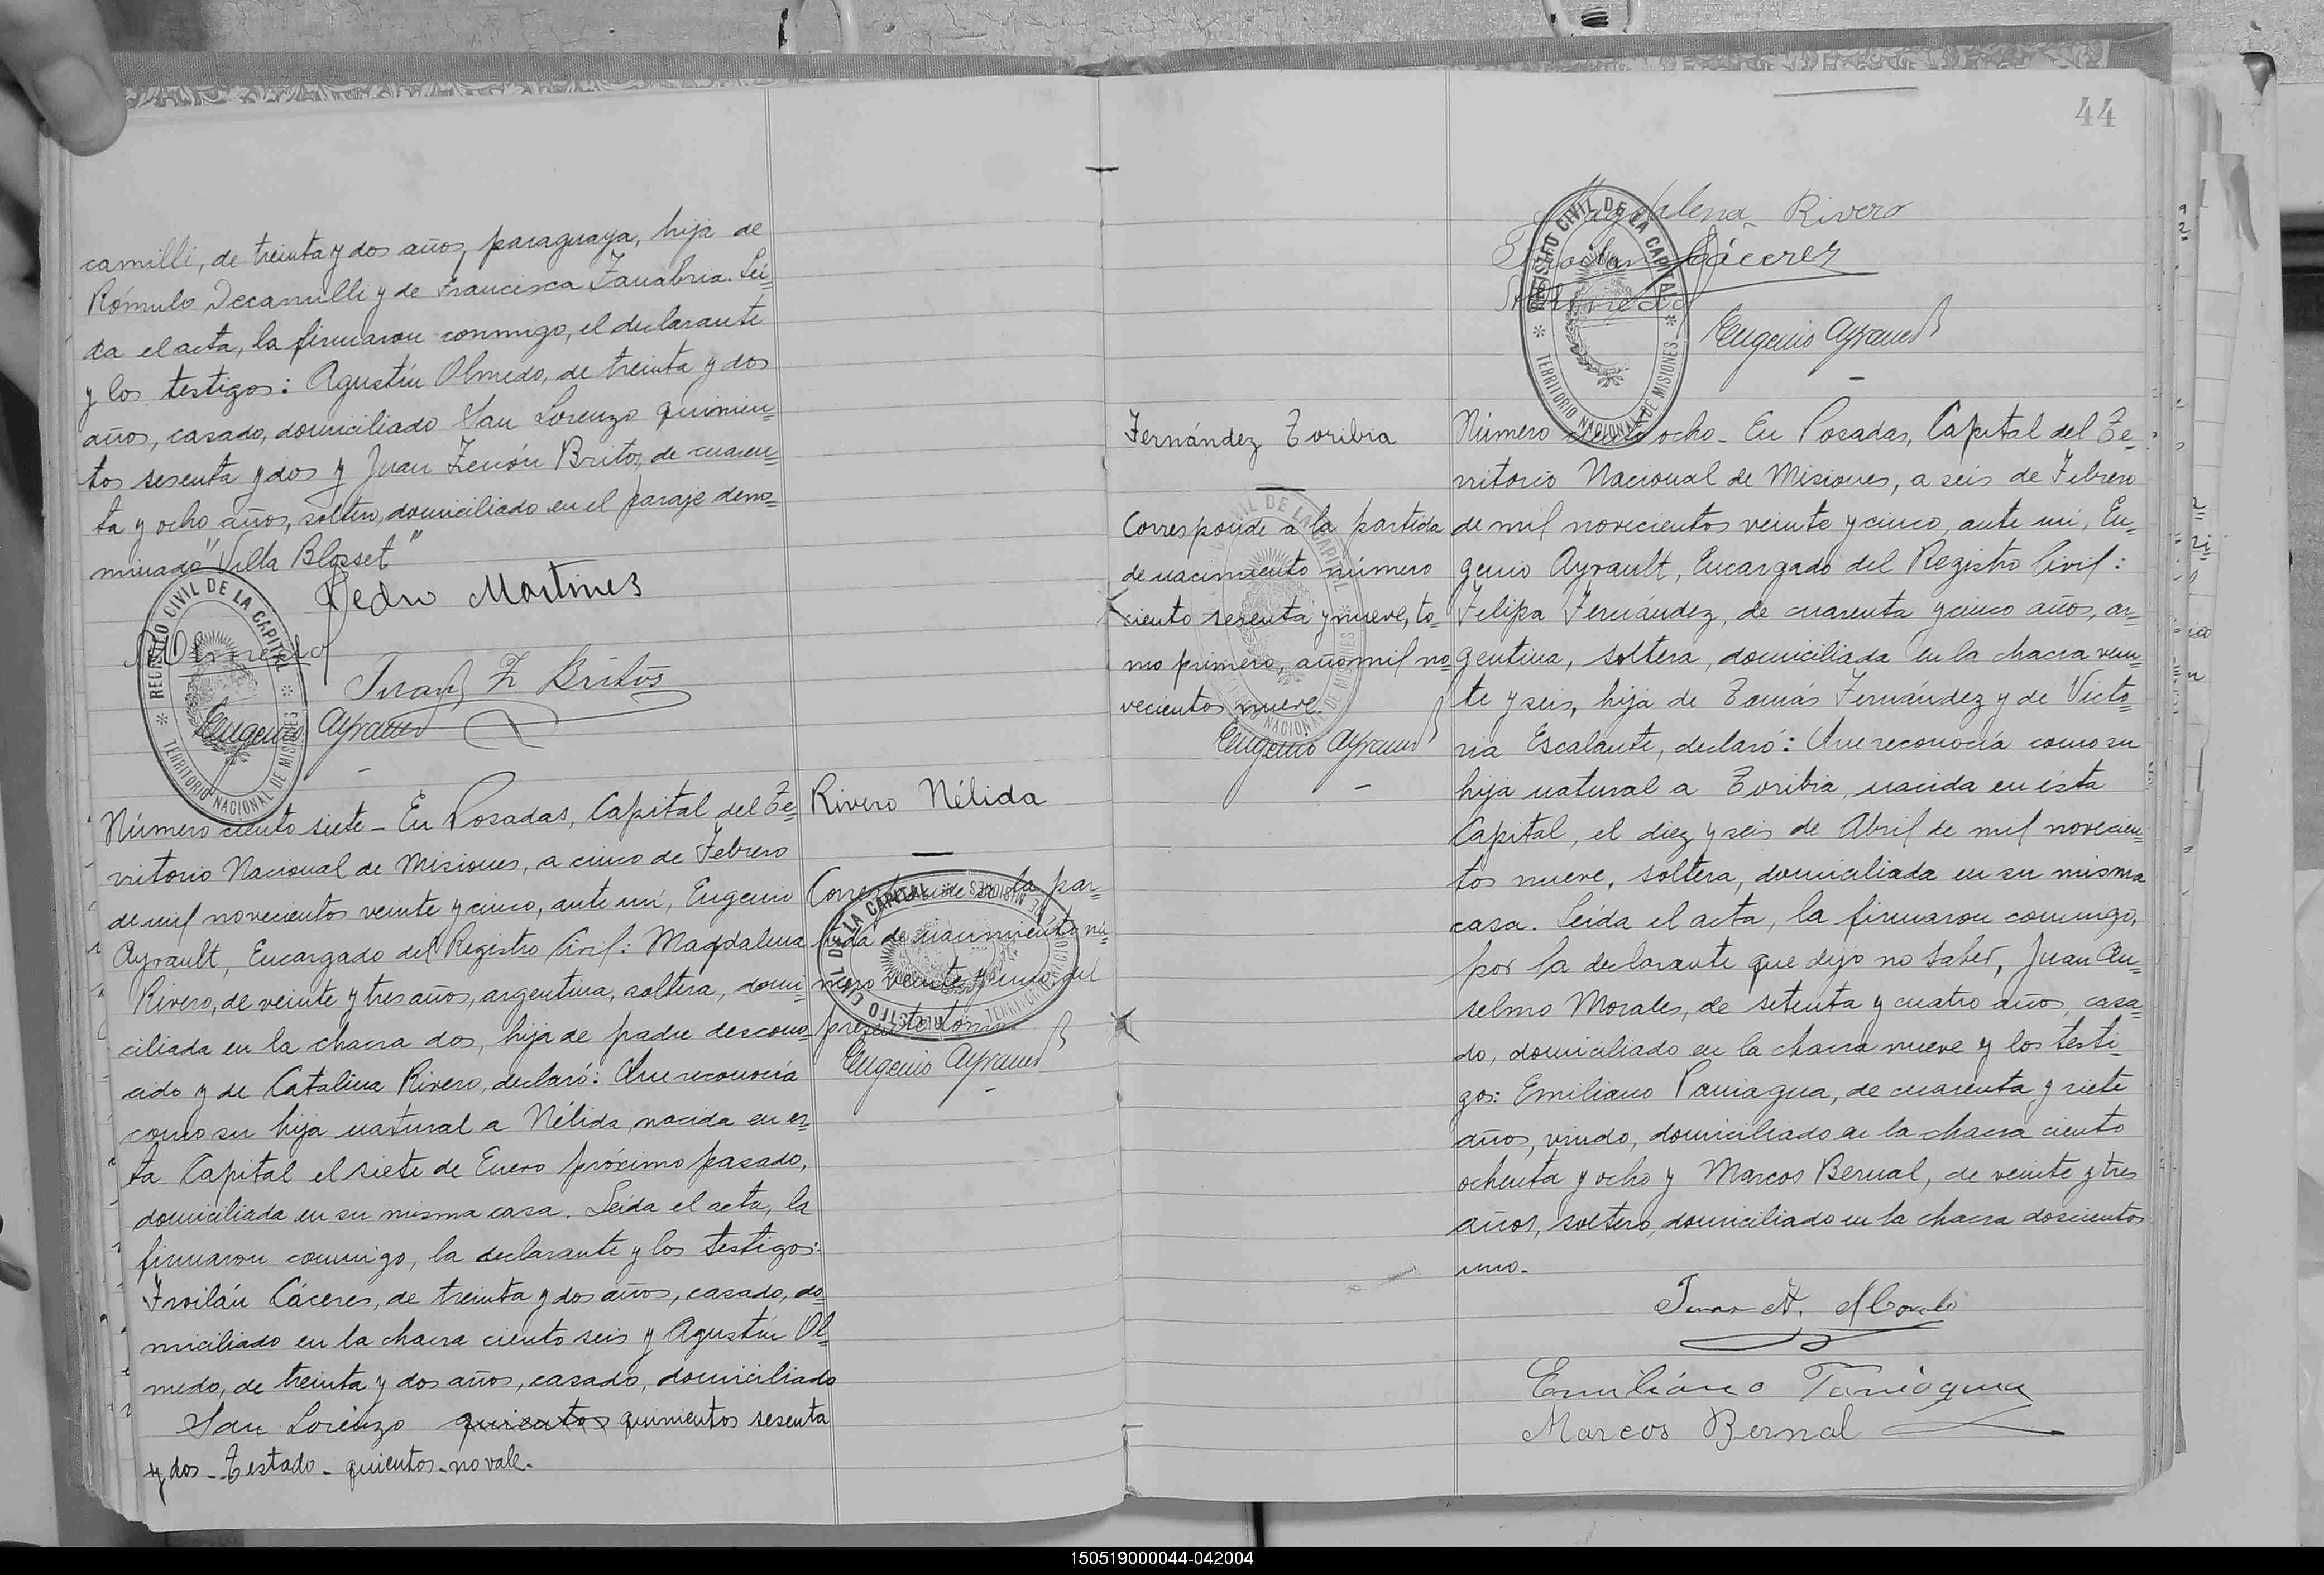 camilli, de treinta y dos años, paraguaya, hija de
Rómulo Decamilli y de Francisca Zanabria. Leí=
da el acta, la firmaron conmigo, el declarante
y los testigos: Agustín Olmedo, de treinta y dos
años, casado, domiciliado San Lorenzo quinien=
tos sesenta y dos y Juan Zenón Britos, de cuaren=
ta y ocho años, soltero, domiciliado en el paraje deno=
minado "Villa Blosset"
Pedro Martines
AOlmedo
Juan Z Britos
Eugenio Ayrault
REGISTRO CIVIL DE LA CAPITAL * TERRITORIO NACIONAL DE MISIONES *
Número ciento siete - En Posadas, Capital del Te=
rritorio Nacional de Misiones, a cinco de Febrero
de mil novecientos veinte y cinco, ante mí, Eugenio
Ayrault, Encargado del Registro Civil: Magdalena
Rivero, de veinte y tres años, argentina, soltera, domi=
ciliada en la chacra dos, hija de padre descono=
cido y de Catalina Rivero, declaró: Que reconocía
como su hija natural a Nélida, nacida en es=
ta Capital el siete de Enero próximo pasado,
domiciliada en su misma casa. Leída el acta, la
firmaron conmigo, la declarante y los testigos:
Froilán Cáceres, de treinta y dos años, casado, do=
miciliado en la chacra ciento seis y Agustín Ol=
medo, de treinta y dos años, casado, domiciliado
San Lorenzo quientos quinientos sesenta
y dos - Testado - quientos - no vale -
Rivero Nélida
Corresponde a la par=
tida de nacimiento nú=
mero veinte y uno del
presente tomo.
Eugenio Ayrault
REGISTRO CIVIL DE LA CAPITAL * TERRITORIO NACIONAL DE MISIONES *
44
Magdalena Rivero
Froilan Cácerez
AOlmedo
Eugenio Ayrault
REGISTRO CIVIL DE LA CAPITAL * TERRITORIO NACIONAL DE MISIONES *
Fernández Toribia
Corresponde a la partida
de nacimiento número
ciento sesenta y nueve, to=
mo primero, año mil no=
vecientos nueve.
Eugenio Ayrault
CIVIL DE LA CAPITAL * TERRITORIO NACIONAL DE MISIONES
Número ciento ocho - En Posadas, Capital del Te=
rritorio Nacional de Misiones, a seis de Febrero
de mil novecientos veinte y cinco, ante mí, Eu=
genio Ayrault, Encargado del Registro Civil:
Felipa Fernández, de cuarenta y cinco años, ar=
gentina, soltera, domiciliada en la chacra vein=
te y seis, hija de Tomás Fernández y de Victo=
ria Escalante, declaró: Que reconocía como su
hija natural a Toribia, nacida en ésta
Capital, el diez y seis de Abril de mil novecien=
tos nueve, soltera, domiciliada en su misma
casa. Leída el acta, la firmaron conmigo,
por la declarante que dijo no saber, Juan An=
selmo Morales, de setenta y cuatro años, casa=
do, domiciliado en la chacra nueve y los testi=
gos: Emiliano Paniagua, de cuarenta y siete
años, viudo, domiciliado en la chacra ciento
ochenta y ocho y Marcos Bernal, de veinte y tres
años, soltero, domiciliado en la chacra doscientos
uno -
Juan A. Morales
Emiliano Paniagua
Marcos Bernal
150519000044-042004